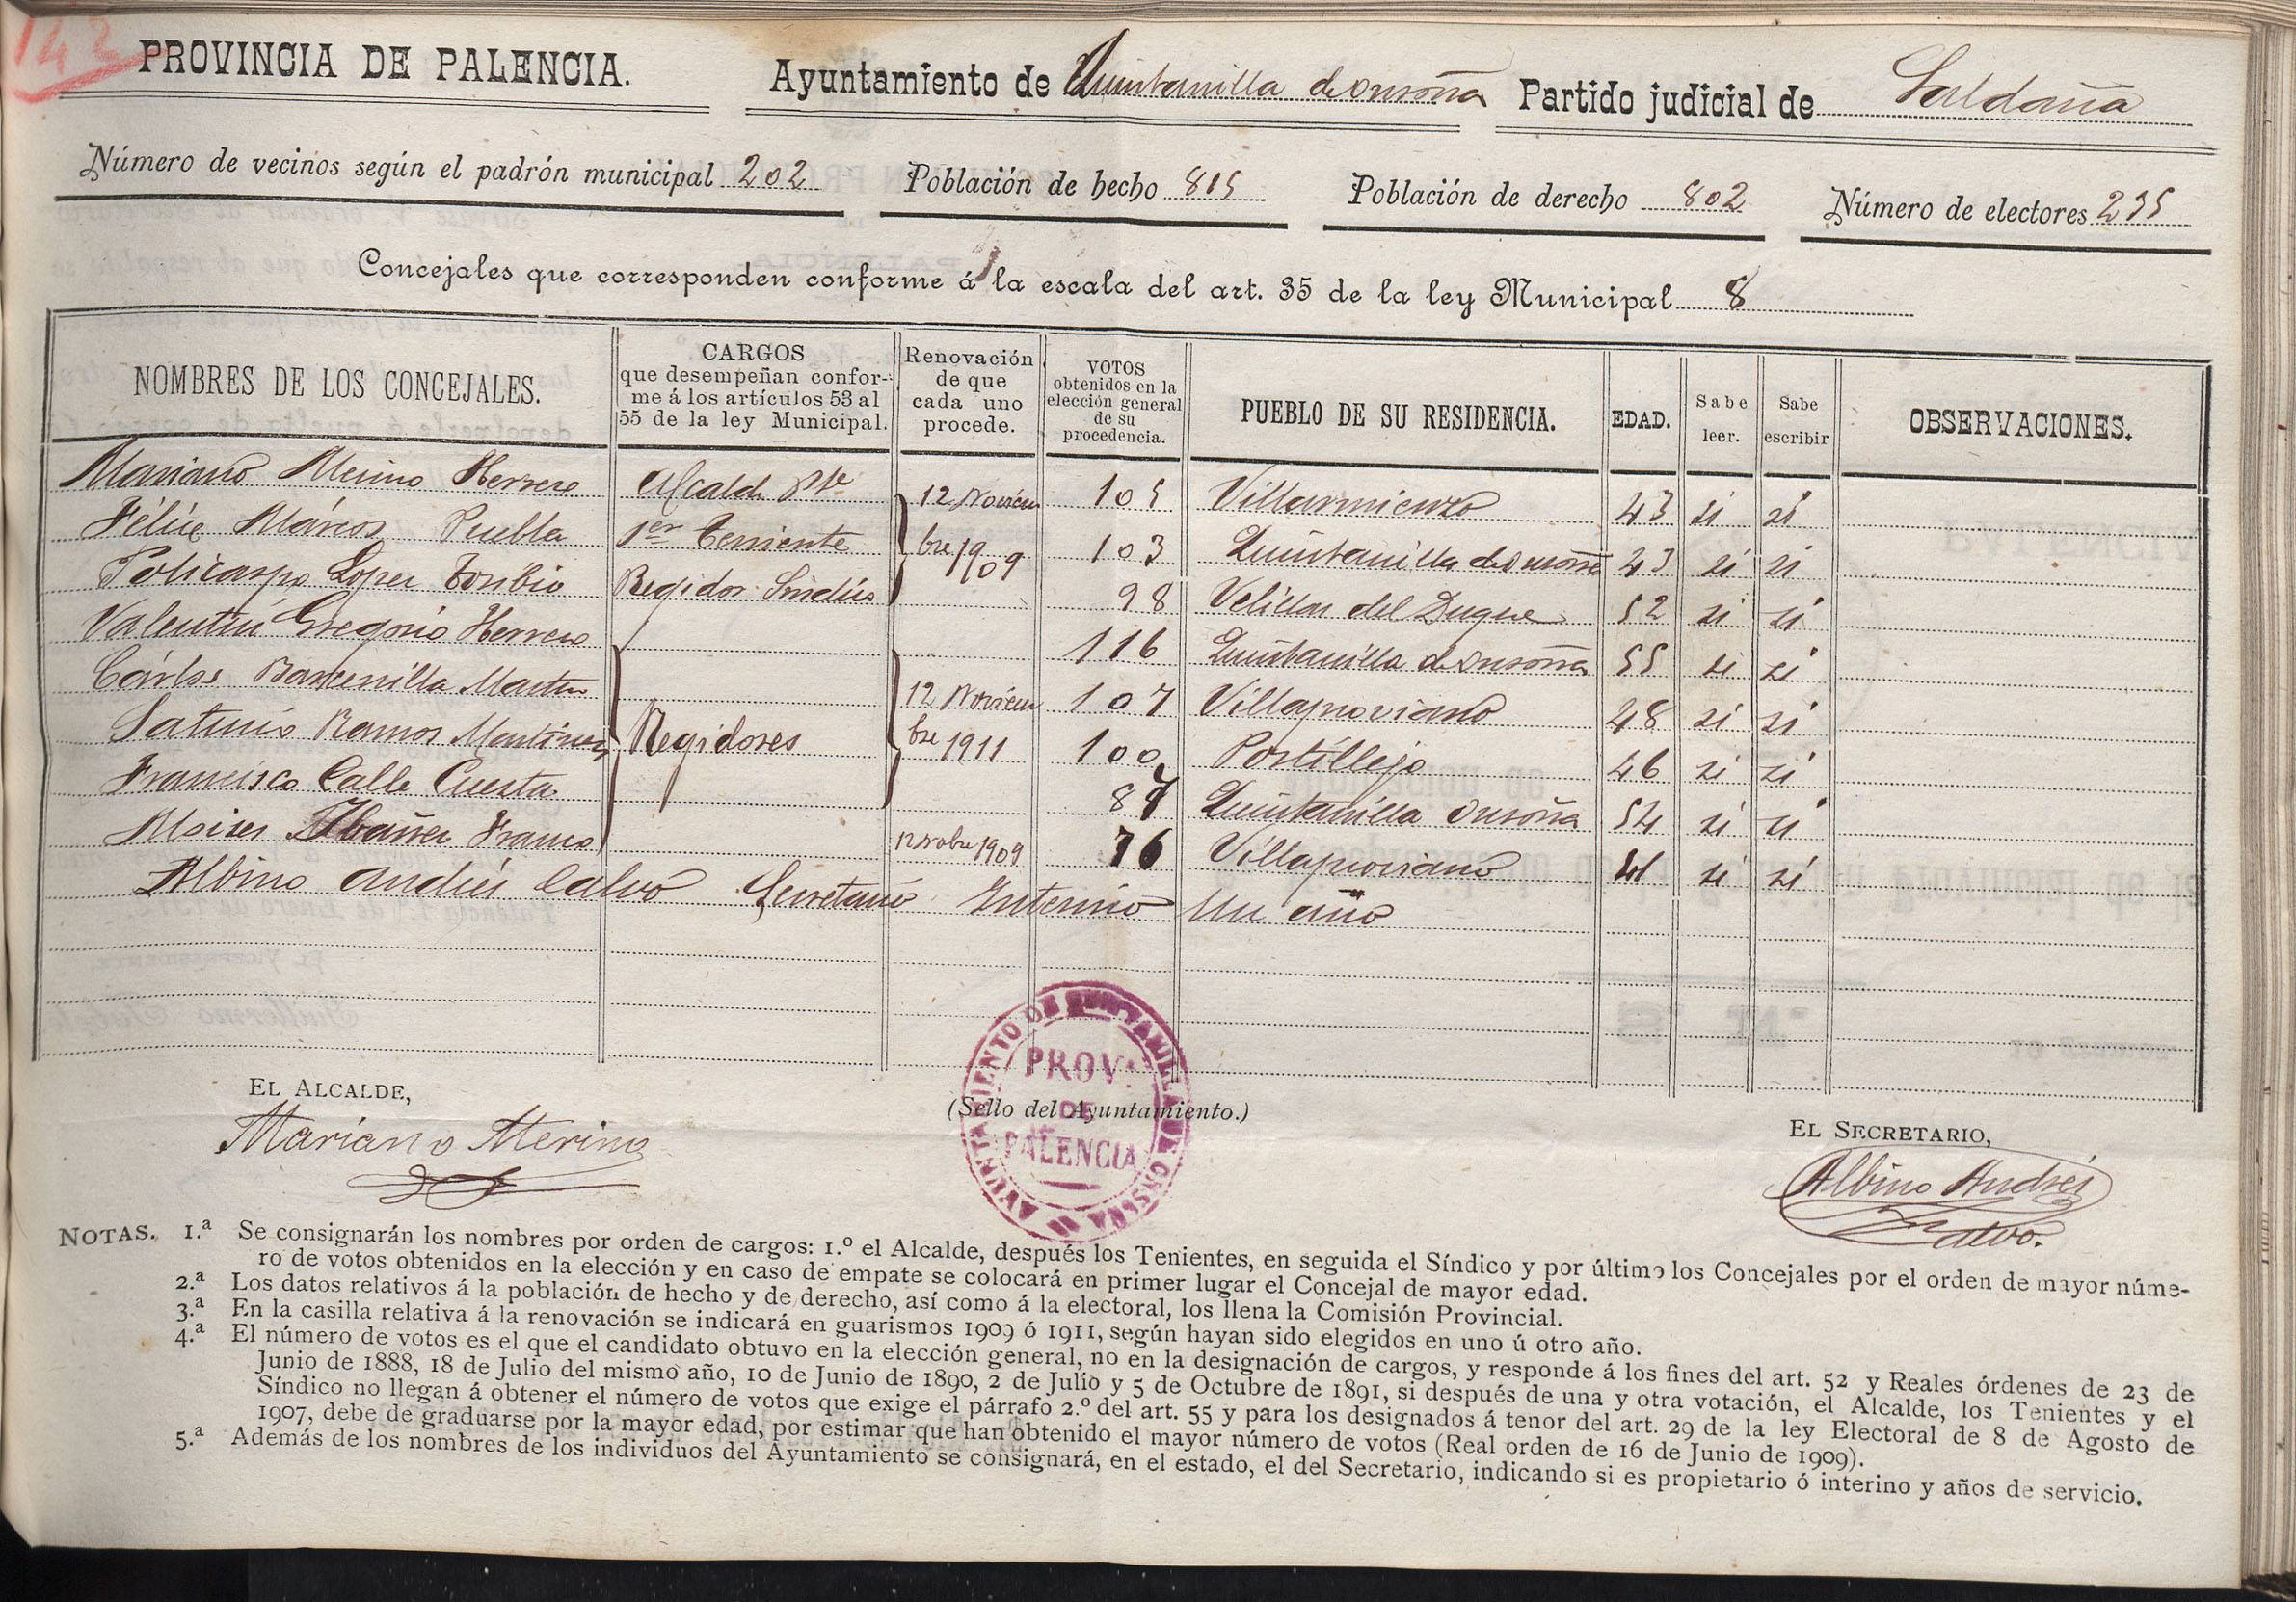 142
PROVINCIA DE PALENCIA. Ayuntamiento de Quintanilla de Onsoña Partido judicial de Saldaña
Número de vecinos según el padrón municipal 202 Población de hecho 815 Población de derecho 802 Número de electores 235
Concejales que corresponden conforme á la escala del art. 35 de la ley Municipal 8
NOMBRES DE LOS CONCEJALES.
CARGOS
que desempeñan confor-
me á los artículos 53 al
55 de la ley Municipal.
Renovación
de que
cada uno
procede.
VOTOS
obtenidos en la
elección general
de su
procedencia.
PUEBLO DE SU RESIDENCIA.
EDAD.
Sabe
leer.
Sabe
escribir
OBSERVACIONES.
Mariano Merino Herrero Alcalde Pte 12 Noviem 105 Villarmienzo 43 si si
Félix Márcos Puebla 1er Teniente bre 1909 103 Quintanilla de Onsoña 23 si si
Policarpo Lopez Toribio Regidor Síndico 98 Velillas del Duque 52 si si
Valentín Gregorio Herrero 116 Quintanilla de Onsoña 55 si si
Cárlos Barcenilla Martin 12 Noviem 107 Villaproviano 48 si si
Saturnio Ramos Martinez Regidores bre 1911 100 Portillejo 46 si si
Francisco Calle Cuesta 87 Quintanilla Onsoña 54 si si
Moises Ibañez Franco 12 Nobre 1909 76 Villaproviano 41 si si
Albino Andrés Calvo Secretario Interino Un año
EL ALCALDE,
Mariano Merino
(Sello del Ayuntamiento.)
AYUNTAMIENTO DE QUINTANILLA DE ONSOÑA
PROV.
DE
PALENCIA
EL SECRETARIO,
Albino Andrés
Calvo.
NOTAS. 1.ª Se consignarán los nombres por orden de cargos: 1.º el Alcalde, después los Tenientes, en seguida el Síndico y por último los Concejales por el orden de mayor núme-
ro de votos obtenidos en la elección y en caso de empate se colocará en primer lugar el Concejal de mayor edad.
2.ª Los datos relativos á la población de hecho y de derecho, así como á la electoral, los llena la Comisión Provincial.
3.ª En la casilla relativa á la renovación se indicará en guarismos 1909 ó 1911, según hayan sido elegidos en uno ú otro año.
4.ª El número de votos es el que el candidato obtuvo en la elección general, no en la designación de cargos, y responde á los fines del art. 52 y Reales órdenes de 23 de
Junio de 1888, 18 de Julio del mismo año, 10 de Junio de 1890, 2 de Julio y 5 de Octubre de 1891, si después de una y otra votación, el Alcalde, los Tenientes y el
Síndico no llegan á obtener el número de votos que exige el párrafo 2.º del art. 55 y para los designados á tenor del art. 29 de la ley Electoral de 8 de Agosto de
1907, debe de graduarse por la mayor edad, por estimar que han obtenido el mayor número de votos (Real orden de 16 de Junio de 1909).
5.ª Además de los nombres de los individuos del Ayuntamiento se consignará, en el estado, el del Secretario, indicando si es propietario ó interino y años de servicio.